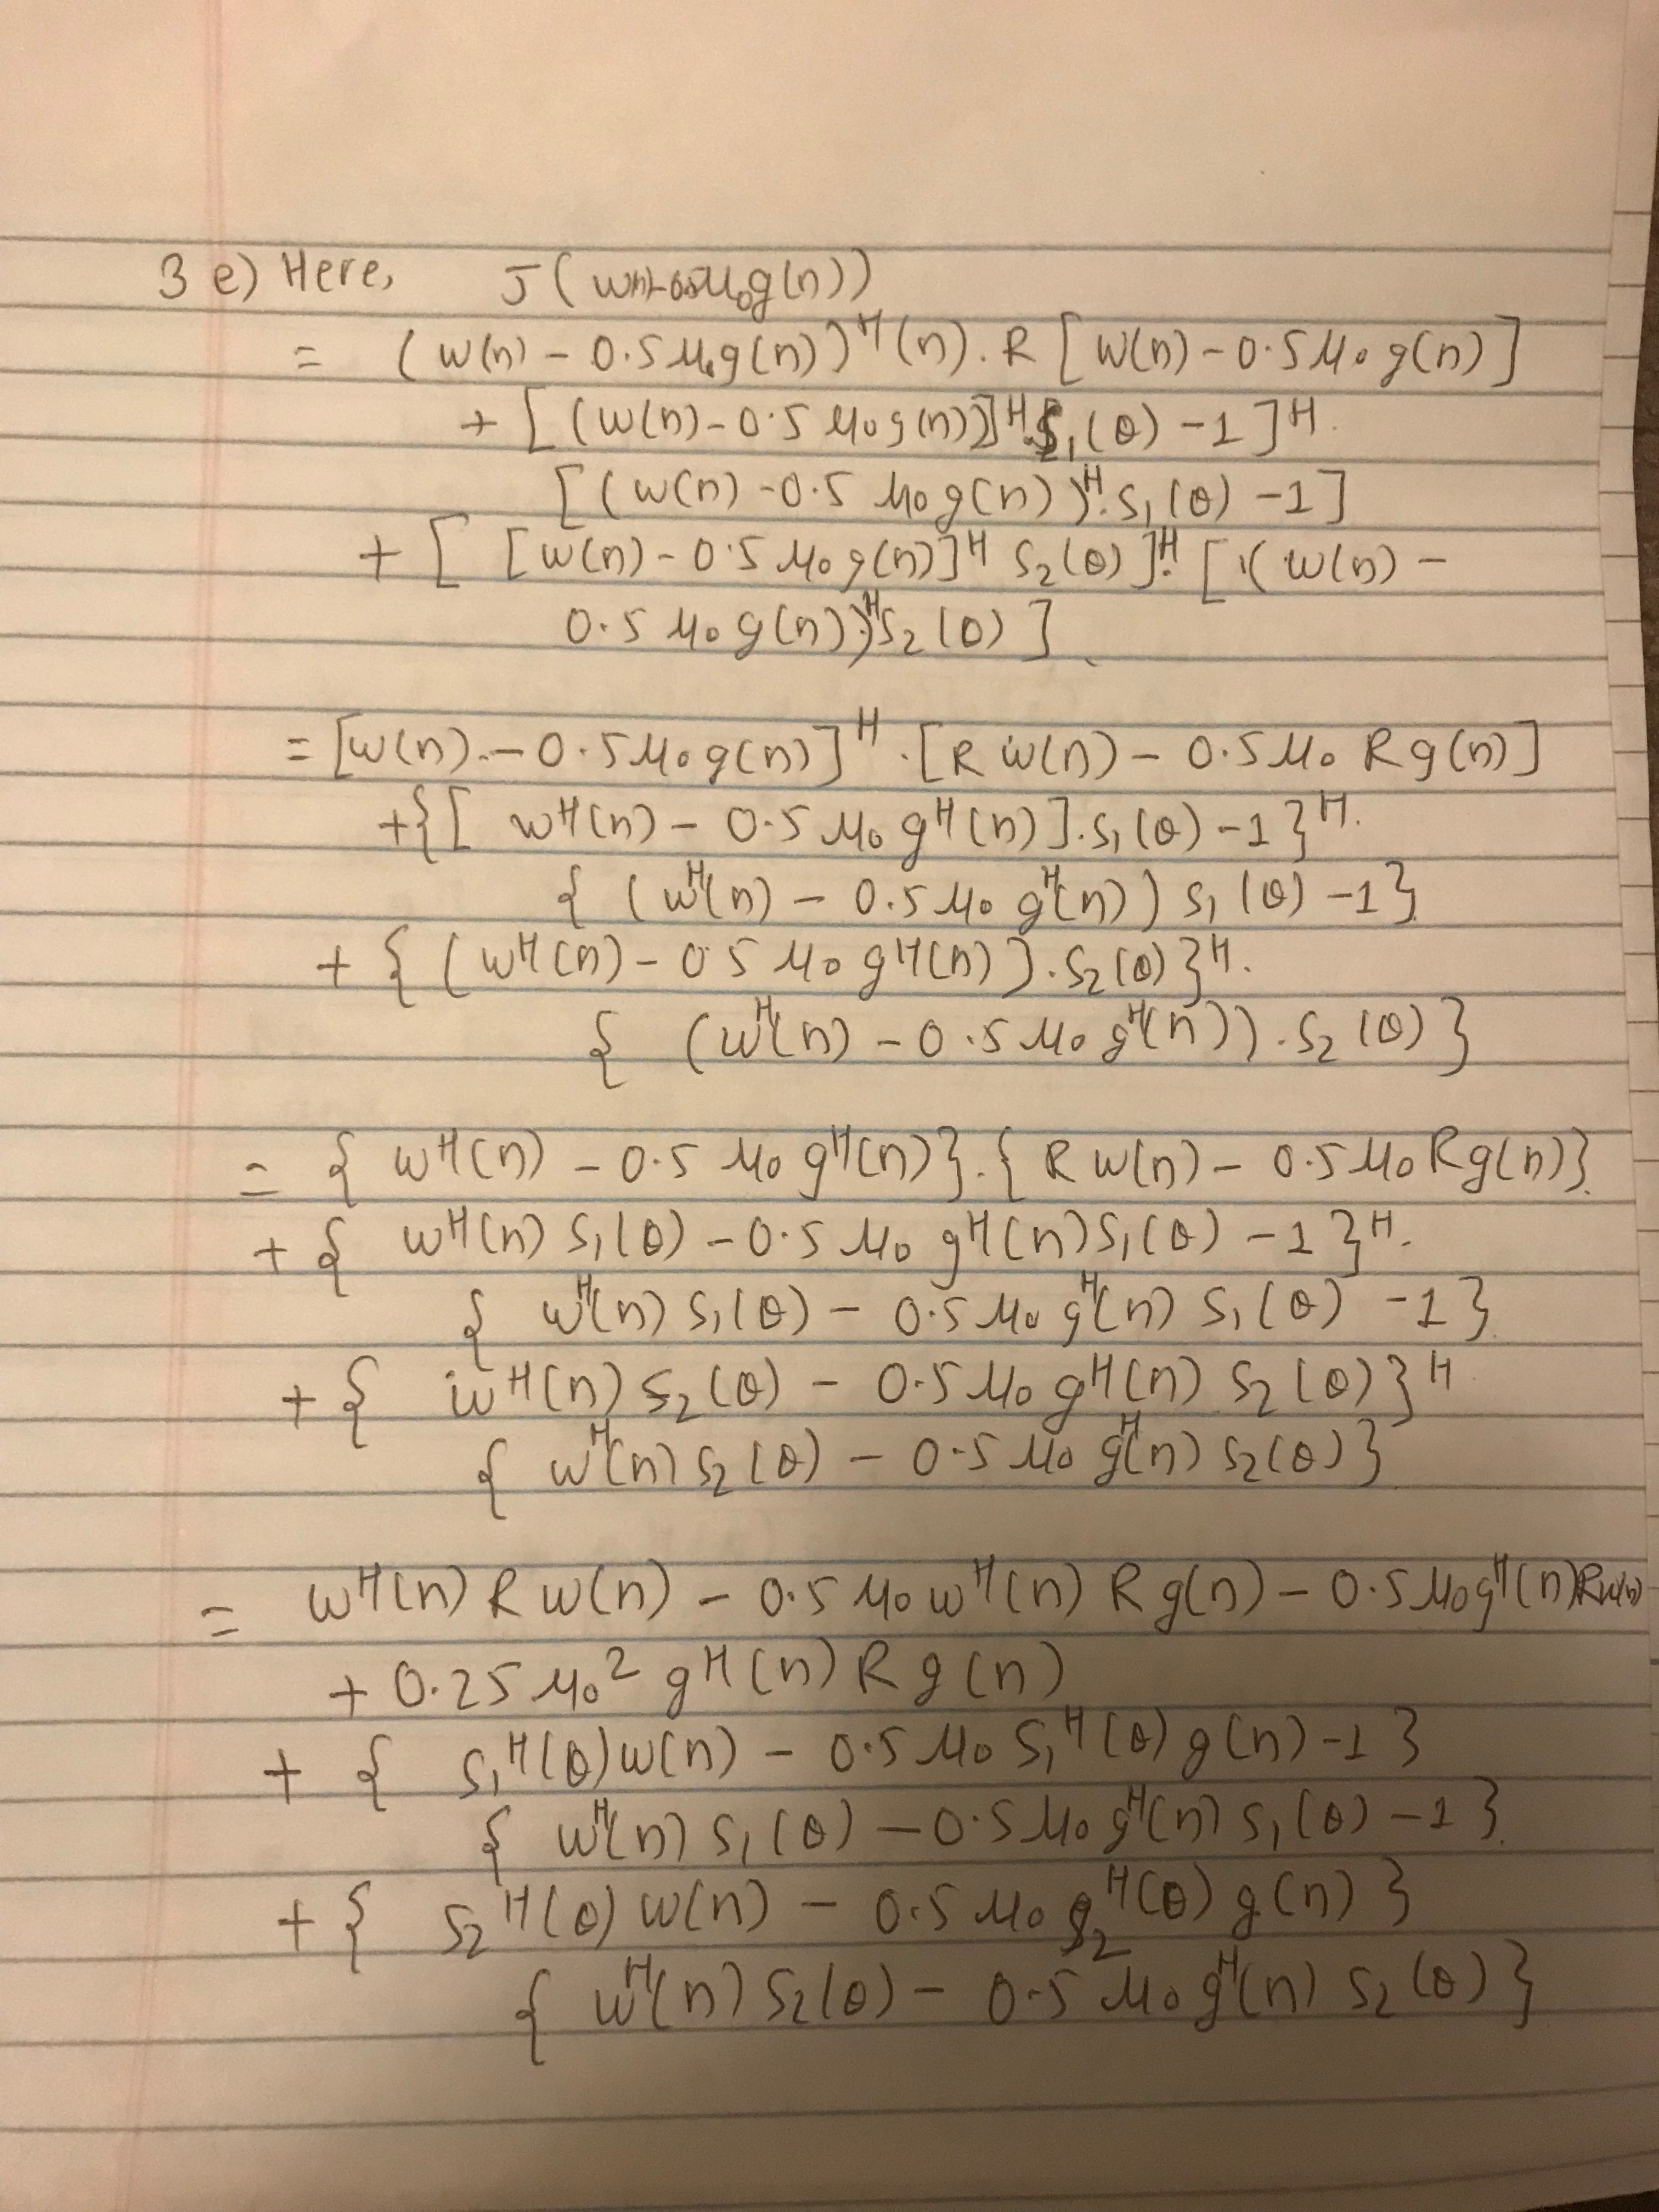 3 e) Here, J ( w(n)-0.5μ₀g(n))
= (w(n) - 0.5μ₀g(n))ᴴ(n). R [w(n) - 0.5μ₀ g(n)]
+ [(w(n) - 0.5 μ₀ g(n))]ᴴ.S₁(θ) - 1]ᴴ.
[(w(n) - 0.5 μ₀ g(n))ᴴ.S₁(θ) - 1]
+ [ [w(n) - 0.5 μ₀ g(n)]ᴴ S₂(θ)]ᴴ. [ (w(n) -
0.5 μ₀ g(n))ᴴS₂(θ) ]
= [w(n) - 0.5μ₀ g(n)]ᴴ .[R w(n) - 0.5μ₀ R g(n)]
+{[ wᴴ(n) - 0.5 μ₀ gᴴ(n)].S₁(θ) - 1}ᴴ.
{ (wᴴ(n) - 0.5 μ₀ gᴴ(n)) S₁(θ) - 1}
+ { (wᴴ(n) - 0.5 μ₀ gᴴ(n)].S₂(θ)}ᴴ.
{ (wᴴ(n) - 0.5 μ₀ gᴴ(n)).S₂(θ)}
= { wᴴ(n) - 0.5 μ₀ gᴴ(n)}.{ R w(n) - 0.5μ₀ R g(n)}
+ { wᴴ(n) S₁(θ) - 0.5 μ₀ gᴴ(n)S₁(θ) - 1}ᴴ.
{ wᴴ(n) S₁(θ) - 0.5μ₀ gᴴ(n) S₁(θ) - 1}
+ { wᴴ(n) S₂(θ) - 0.5 μ₀ gᴴ(n) S₂(θ)}ᴴ
{ wᴴ(n) S₂(θ) - 0.5 μ₀ gᴴ(n) S₂(θ)}
= wᴴ(n) R w(n) - 0.5 μ₀ wᴴ(n) R g(n) - 0.5 μ₀gᴴ(n)Rw(n)
+ 0.25 μ₀² gᴴ(n) R g(n)
+ { S₁ᴴ(θ)w(n) - 0.5 μ₀ S₁ᴴ(θ) g(n) - 1}
{ wᴴ(n) S₁(θ) - 0.5 μ₀ gᴴ(n) S₁(θ) - 1}
+ { S₂ᴴ(θ) w(n) - 0.5 μ₀ S₂ᴴ(θ) g(n) }
{ wᴴ(n) S₂(θ) - 0.5 μ₀ gᴴ(n) S₂(θ) }